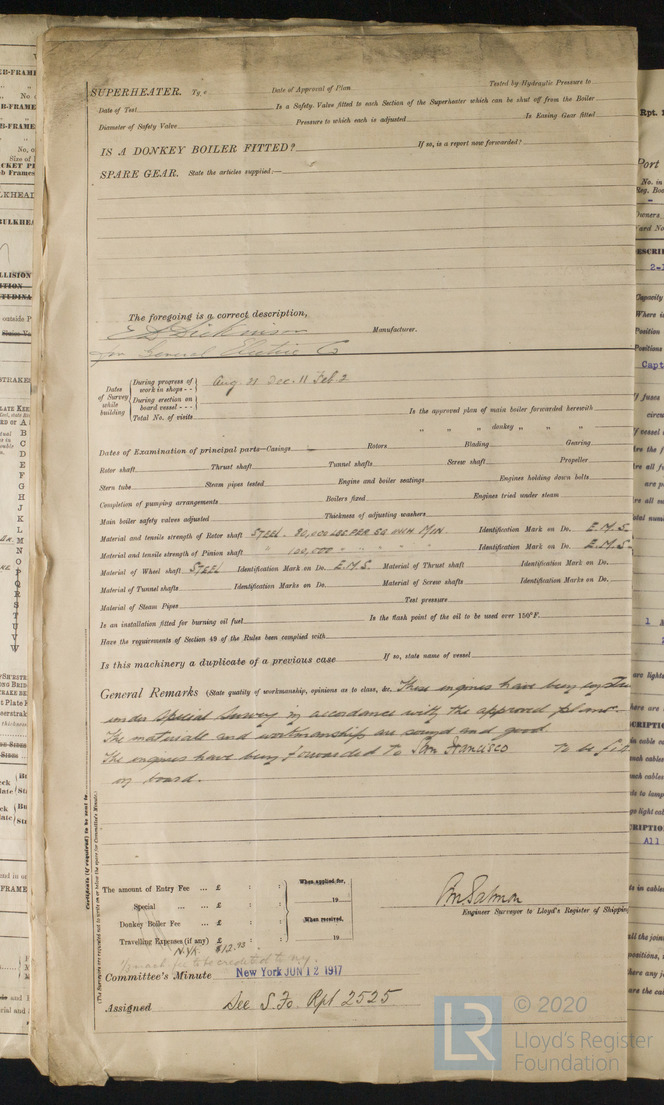 SUPERHEATER. Date of Approval of Plan Tested by Hydraulic Pressure to
Date of Test Is a Safety Valve fitted to each Section of the Superheater which can be shut off from the Boiler
Diameter of Safety Valve Pressure to which each is adjusted Is Easing Gear fitted
IS A DONKEY BOILER FITTED? If so, is a report now forwarded?
SPARE GEAR. State the articles supplied:—
The foregoing is a correct description,
E D Dickinson Manufacturer.
for General Electric Co
Dates of Survey while building
During progress of work in shops - - Aug. 31 Dec. 11 Feb. 2
During erection on board vessel - - -
Total No. of visits Is the approved plan of main boiler forwarded herewith
" " " donkey " " "
Dates of Examination of principal parts—Casings Rotors Blading Gearing
Rotor shaft Thrust shaft Tunnel shafts Screw shaft Propeller
Stern tube Steam pipes tested Engine and boiler seatings Engines holding down bolts
Completion of pumping arrangements Boilers fixed Engines tried under steam
Main boiler safety valves adjusted Thickness of adjusting washers
Material and tensile strength of Rotor shaft STEEL. 80,000 LBS PER SQ INCH MIN. Identification Mark on Do. E.M.S.
Material and tensile strength of Pinion shaft " 100,000 " " " " Identification Mark on Do. E.M.S.
Material of Wheel shaft STEEL Identification Mark on Do. E.M.S. Material of Thrust shaft Identification Mark on Do.
Material of Tunnel shafts Identification Marks on Do. Material of Screw shafts Identification Marks on Do.
Material of Steam Pipes Test pressure
Is an installation fitted for burning oil fuel Is the flash point of the oil to be used over 150°F.
Have the requirements of Section 49 of the Rules been complied with
Is this machinery a duplicate of a previous case If so, state name of vessel
General Remarks (State quality of workmanship, opinions as to class, &c. These engines have been
under Special Survey in accordance with the approved plans.
The materials and workmanship are sound and good.
The engines have been forwarded to San Francisco to be
on board.
Certificate (if required) to be sent to
(The Surveyors are requested not to write on or below the space for Committee's Minute.)
The amount of Entry Fee ... £ : : When applied for,
Special ... ... £ : : 19
Donkey Boiler Fee ... £ : : When received,
Travelling Expenses (if any) £ : : 19
N.Yk.
Wm Salmon
Engineer Surveyor to Lloyd's Register of Shipping
Committee's Minute New York JUN 12 1917
Assigned See S. Fo. Rpt 2525
LR © 2020
Lloyd's Register
Foundation